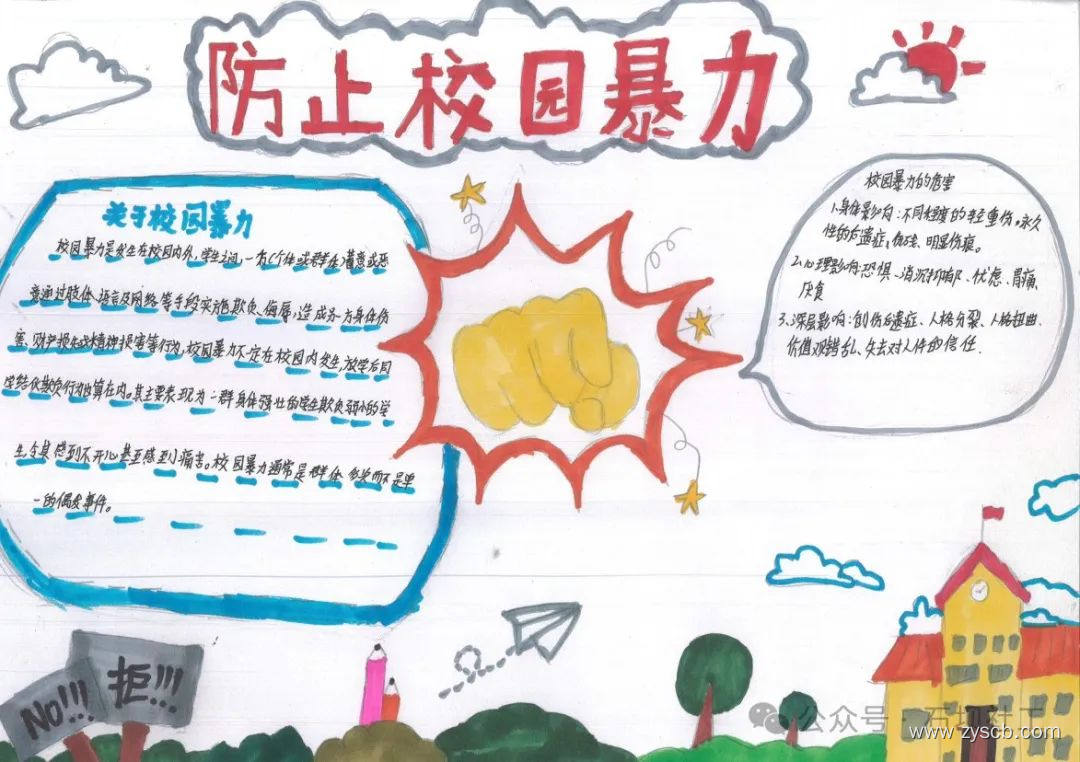 防止校园暴力
关于校园暴力
校园暴力是发生在校园内外,学生之间,一方(个体或群体)蓄意或恶
意通过肢体、语言及网络等手段实施欺负、侮辱,造成另一方身体伤
害、财产损失或精神损害等行为,校园暴力不一定在校园内发生,放学后同
学结伙欺负行为也算在内。其主要表现为:一群身体强壮的学生欺负弱小的学
生,令其感到不开心甚至感到痛苦。校园暴力通常是群体多次而不是单
一的偶发事件。
校园暴力的危害
1.身体影响:不同程度的轻重伤。永久
性的后遗症,伤残、明显伤痕。
2.心理影响:恐惧、消沉抑郁、忧虑、胃痛、
厌食
3、深层影响:创伤后遗症、人格分裂、人格扭曲、
价值观错乱、失去对人性的信任.
NO!!!
拒!!!
公众号·石圳社工
www.zyscb.com